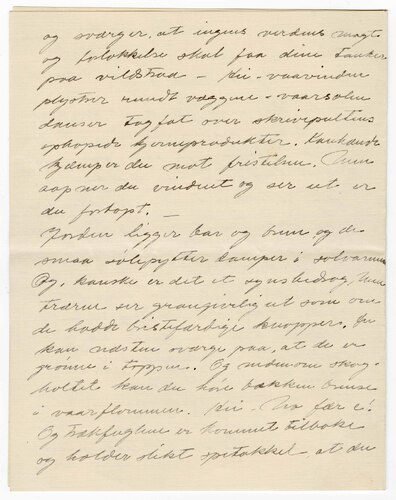 og sværger, at ingens verdens magt
og forlokkelse skal faa dine tanker
paa vildstrad – Kvi – vaarvinden
plystrer rundt væggene – vaarsolen
danser tagfat over skrivepultens
ophopede hjerneprodukter. Kanhænde
kjæmper du mot fristelsen. Men
aapner du vinduet og ser ut er
du fortapt. —
Jorden ligger bar og brun og de
smaa solpytter damper i solvarmen
Og, kanske er det et synsbedrag, men
trærne ser grangivelig ut som om
de hadde bristefærdige knopper. Du
kan næsten sværge paa, at de er
grønne i toppen. Og mellem skog-
holtet kan du høre bækken bruse
i vaarflommen. Kvi – Na fær e!
Og trækfuglene er kommet tilbake
og holder slikt spetakkel at du